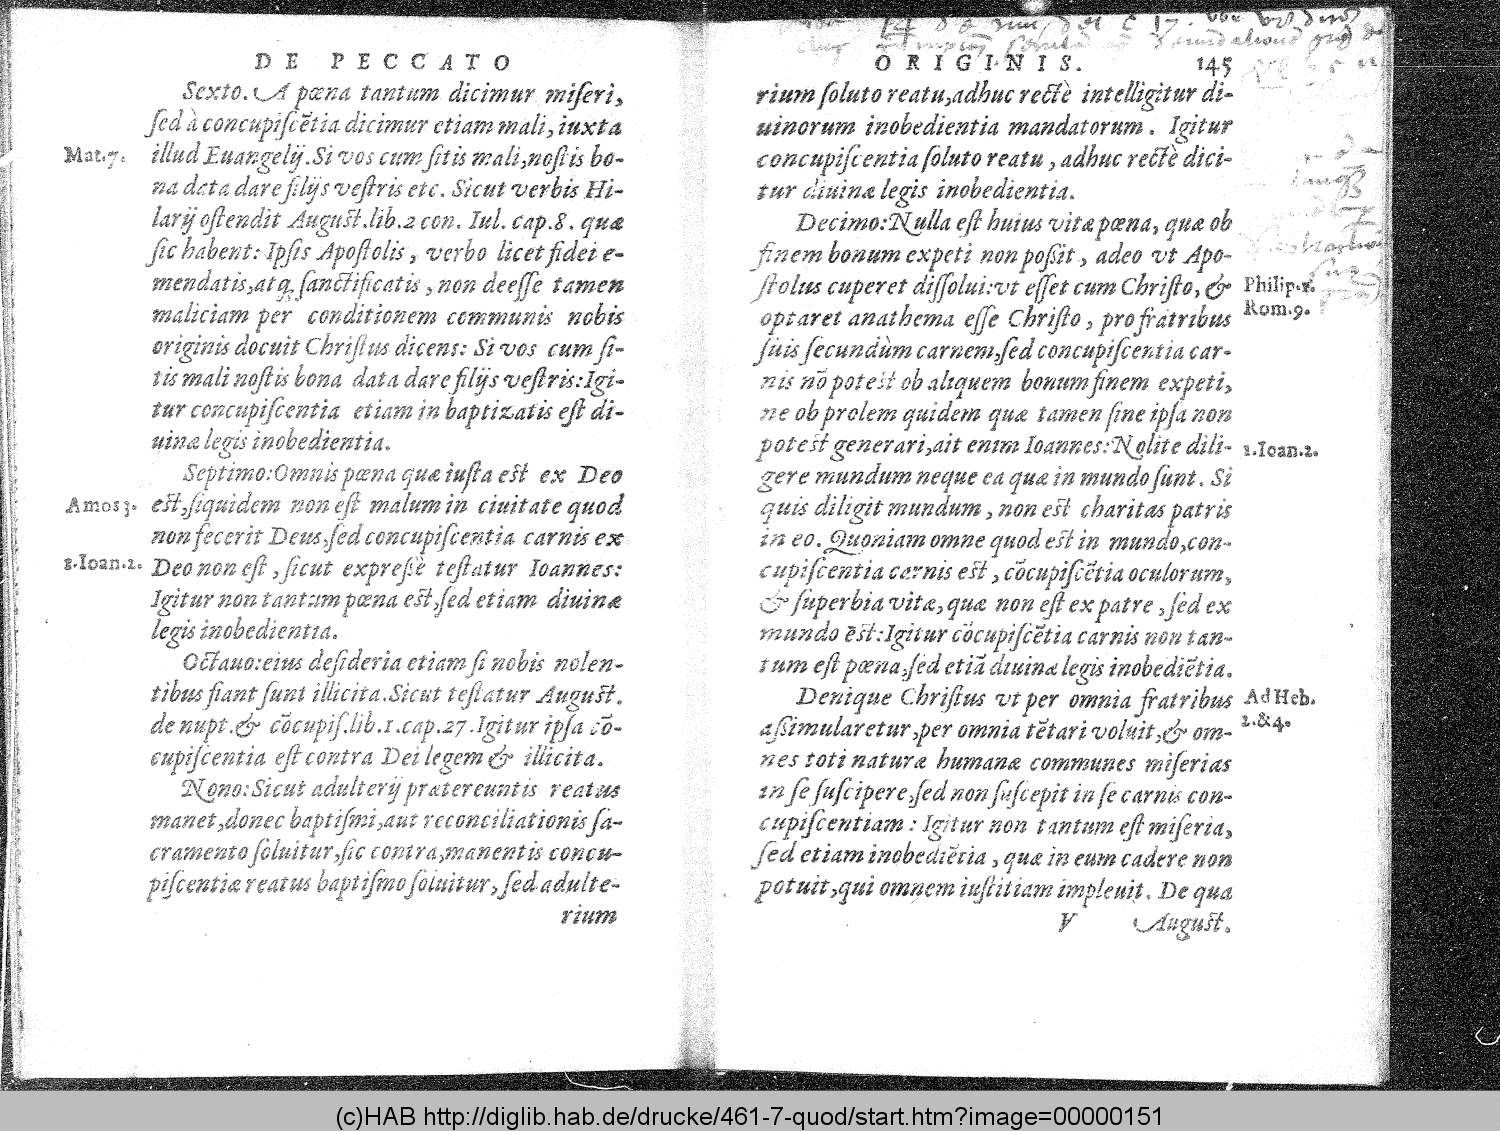 DE PECCATO
Sexto. A pœna tantum dicimur miseri,
sed à concupiscẽtia dicimur etiam mali, iuxta
Mat.7.
illud Euangelij. Si vos cum sitis mali, nostis bo-
na data dare filijs vestris etc. Sicut verbis Hi-
larij ostendit August. lib.2 con. Iul. cap.8. quæ
sic habent: Ipsis Apostolis, verbo licet fidei e-
mendatis, atq; sanctificatis, non deesse tamen
maliciam per conditionem communis nobis
originis docuit Christus dicens: Si vos cum si-
tis mali nostis bona data dare filijs vestris: Igi-
tur concupiscentia etiam in baptizatis est di-
uinæ legis inobedientia.
Septimo: Omnis pœna quæ iusta est ex Deo
Amos 3.
est, siquidem non est malum in ciuitate quod
non fecerit Deus, sed concupiscentia carnis ex
1.Ioan.2.
Deo non est, sicut expressè testatur Ioannes:
Igitur non tantum pœna est, sed etiam diuinæ
legis inobedientia.
Octauo: eius desideria etiam si nobis nolen-
tibus fiant sunt illicita. Sicut testatur August.
de nupt. & cõcupis. lib.1. cap.27. Igitur ipsa cõ-
cupiscentia est contra Dei legem & illicita.
Nono: Sicut adulterij prætereuntis reatus
manet, donec baptismi, aut reconciliationis sa-
cramento soluitur, sic contra, manentis concu-
piscentiæ reatus baptismo soluitur, sed adulte-
rium
ORIGINIS. 145
rium soluto reatu, adhuc rectè intelligitur di-
uinorum inobedientia mandatorum. Igitur
concupiscentia soluto reatu, adhuc rectè dici-
tur diuinæ legis inobedientia.
Decimo: Nulla est huius vitæ pœna, quæ ob
finem bonum expeti non possit, adeo vt Apo-
stolus cuperet dissolui: vt esset cum Christo, &
Philip.1.
optaret anathema esse Christo, pro fratribus
Rom.9.
suis secundùm carnem, sed concupiscentia car-
nis nõ potest ob aliquem bonum finem expeti,
ne ob prolem quidem quæ tamen sine ipsa non
potest generari, ait enim Ioannes: Nolite dili-
1.Ioan.2.
gere mundum neque ea quæ in mundo sunt. Si
quis diligit mundum, non est charitas patris
in eo. Quoniam omne quod est in mundo, con-
cupiscentia carnis est, cõcupiscẽtia oculorum,
& superbia vitæ, quæ non est ex patre, sed ex
mundo est: Igitur cõcupiscẽtia carnis non tan-
tum est pœna, sed etiã diuinæ legis inobediẽtia.
Denique Christus vt per omnia fratribus
Ad Heb.
assimularetur, per omnia tẽtari voluit, & om-
2.&4.
nes toti naturæ humanæ communes miserias
in se suscipere, sed non suscepit in se carnis con-
cupiscentiam: Igitur non tantum est miseria,
sed etiam inobediẽtia, quæ in eum cadere non
potuit, qui omnem iustitiam impleuit. De qua
V August.
(c)HAB http://diglib.hab.de/drucke/461-7-quod/start.htm?image=00000151